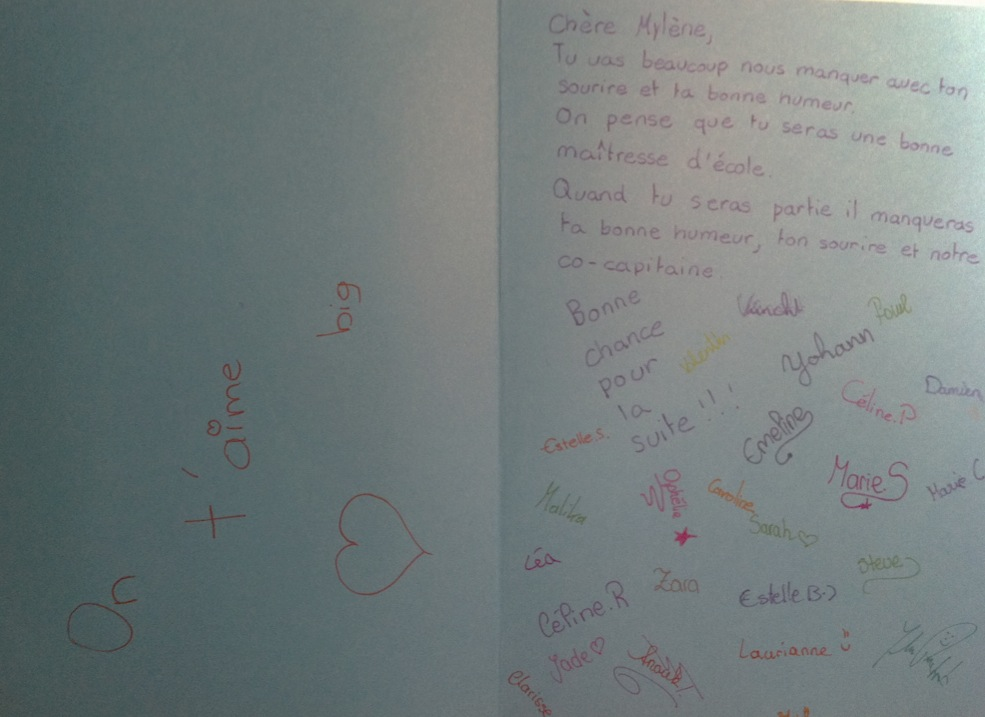 On
t'aime
big
Chère Mylène,
Tu vas beaucoup nous manquer avec ton
sourire et ta bonne humeur.
On pense que tu seras une bonne
maîtresse d'école.
Quand tu seras partie il manqueras
ta bonne humeur, ton sourire et notre
co-capitaine.
Bonne
chance
pour
la
suite!!!
Valentin
Yohann
Paul
Céline.P
Damien
Estelle.S.
Emeline
Marie S
Marie C
Malika
Ophélie
Caroline
Sarah♡
Steve
Léa
Zara
Estelle B-)
Céline.R
Laurianne
Jade♡
Anaïs
Clarisse